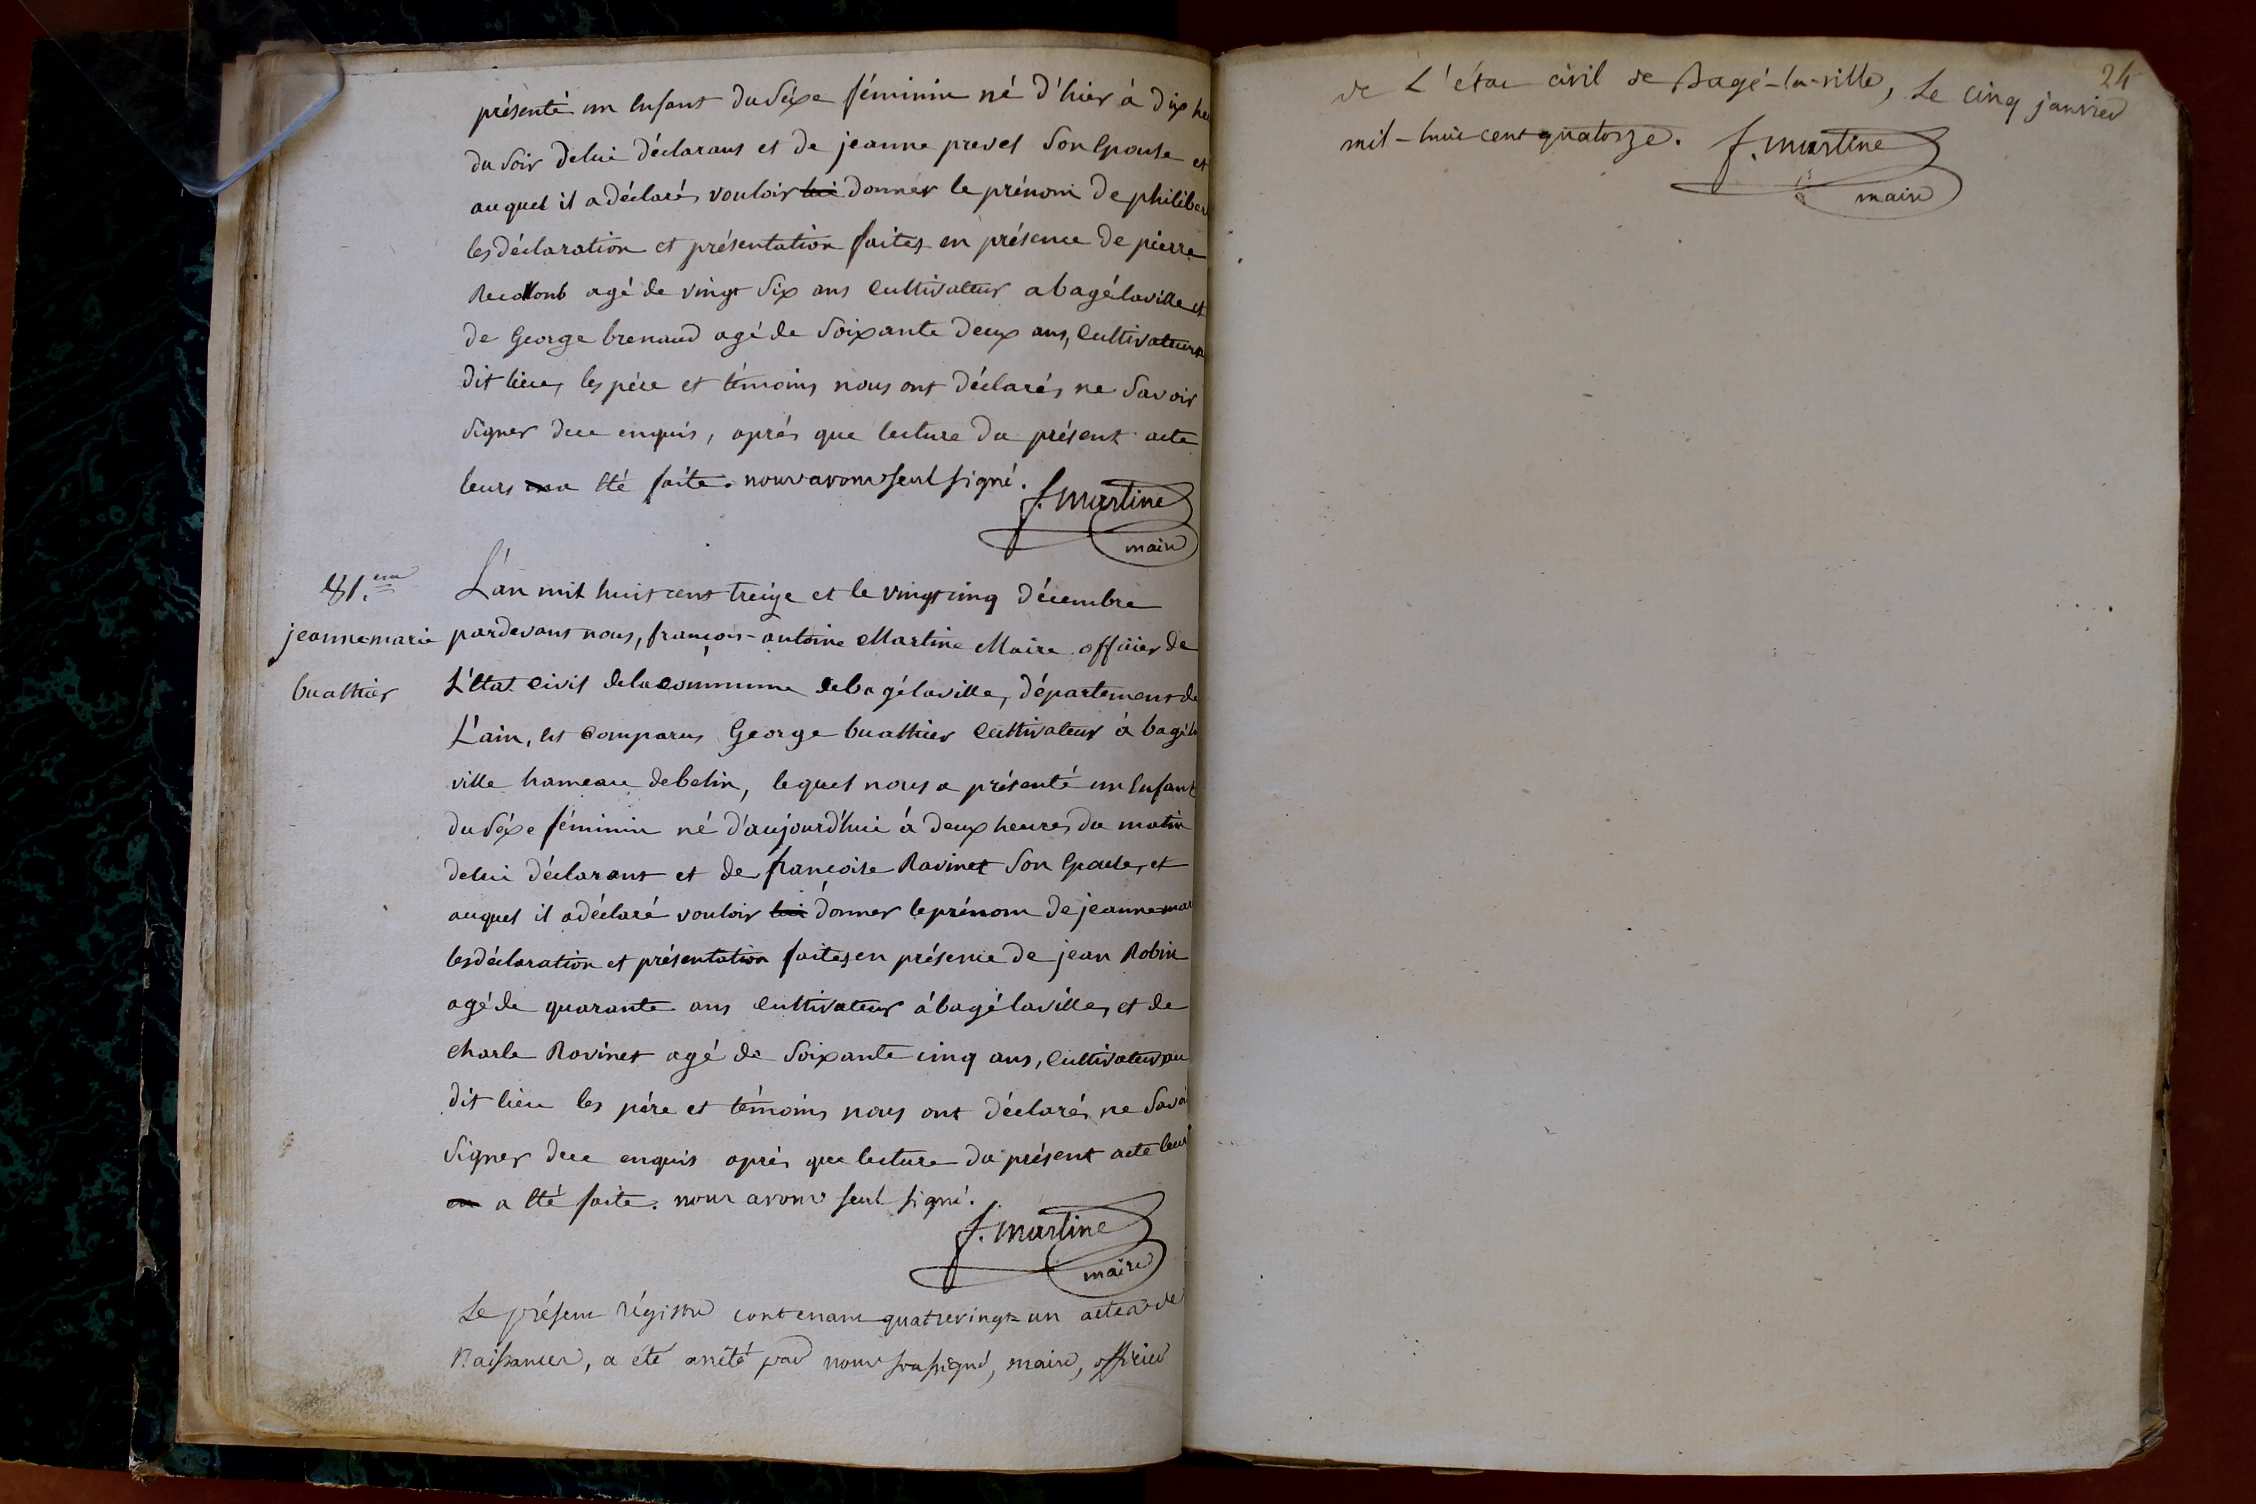 présenté un Enfant du Séxe féminin né d'hier à dix he
du Soir de lui déclarant et de jeanne prevet Son Epouse et
auquel il a déclaré vouloir lui donner le prénom de philiber
les déclaration et présentation faites en présence de pierre
agé de vingt Six ans Cultivateur a bagélaville et
de George brenaud agé de Soixante deux ans, Cultivateur
dit lieu, les pére et témoins nous ont déclarés ne Savoir
Signer de ce enquis, aprés que lecture du présent acte
leurs en a Eté faite. nous avons seul signé.
f. martine
maire
81.eme
L'an mil huit cent treize et le vingt cinq décembre
jeanne marie
pardevant nous, françois-antoine Martine Maire officier de
buathier
L'Etat Civil de la commune de bagélaville, département de
L'ain, est Comparus George buathier Cultivateur à bagé la
ville hameau de belin, lequel nous a présenté un Enfant
du Séxe féminin né d'aujourd'hui à deux heures du matin
de lui déclarant et de françoise Ravinet Son Epouse, et
auquel il a déclaré vouloir lui donner le prénom de jeanne mar
les déclaration et présentation faites en présence de jean Robin
agé de quarante ans Cultivateur à bagé laville, et de
charle Ravinet agé de Soixante cinq ans, Cultivateur au
dit lieu les pére et témoins nous ont déclarés ne Savoi
Signer de ce enquis aprés que lecture du présent acte leur
en a Eté faite. nous avons seul signé.
f. martine
maire
Le présent régistre contenant quatrevingt-un actes de
Naissances, a été arrêté par nous soussigné, maire, officier
24
de L'état civil de Bagé-la-ville, Le cinq janvier
mil-huit cent quatorze.
f. martine
maire